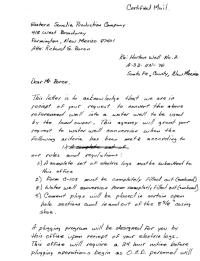 Certified Mail.
Western Somalia Production Company
918 West Broadway
Farmington, New Mexico 87401
Attn: Richard G. Boren
Re: Horton Well No. 2
Santa Fe, County, New Mexico
Dear Mr. Boren:
This letter is to acknowledge that we are in
receipt of your request to convert the above
referenced well into a water well to be used
by the land owner. This agency will grant your
request to water well conversion when the
following criteria has been met according to
our rules and regulations:
1) A complete set of electric logs must be submitted to
this office
2) Form C-103 must be completely filled out (enclosed)
3) Water well conversion form completely filled out (enclosed)
4) Cement plugs will be placed in certain open
hole sections and in and out of the 8 5/8" casing
shoe.
A plugging program will be designed for you by
this office upon receipt of your electric logs.
This office will require a 24 hour notice before
plugging operations begin as O.C.D. personnel will